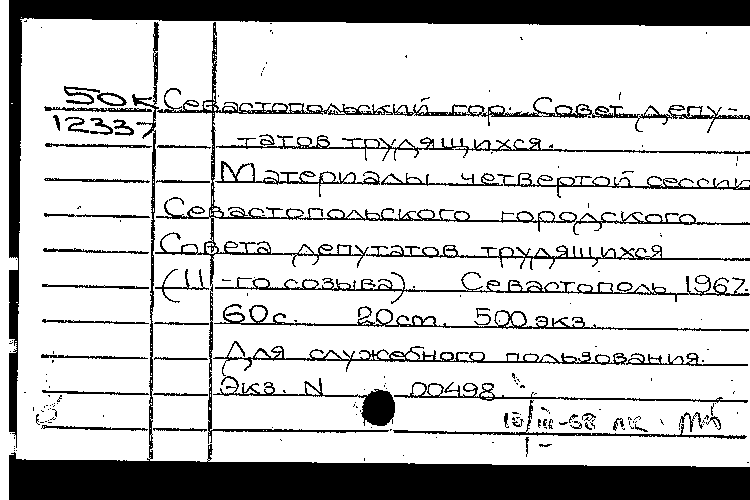 50К Севастопольский гор. Совет депу-
12337 татов трудящихся.
Материалы четвертой сессии
Севастопольского городского
Совета депутатов трудящихся
(11-го созыва). Севастополь, 1967.
60с. 20см. 500 экз.
Для служебного пользования.
Экз. N 00498.
III-68